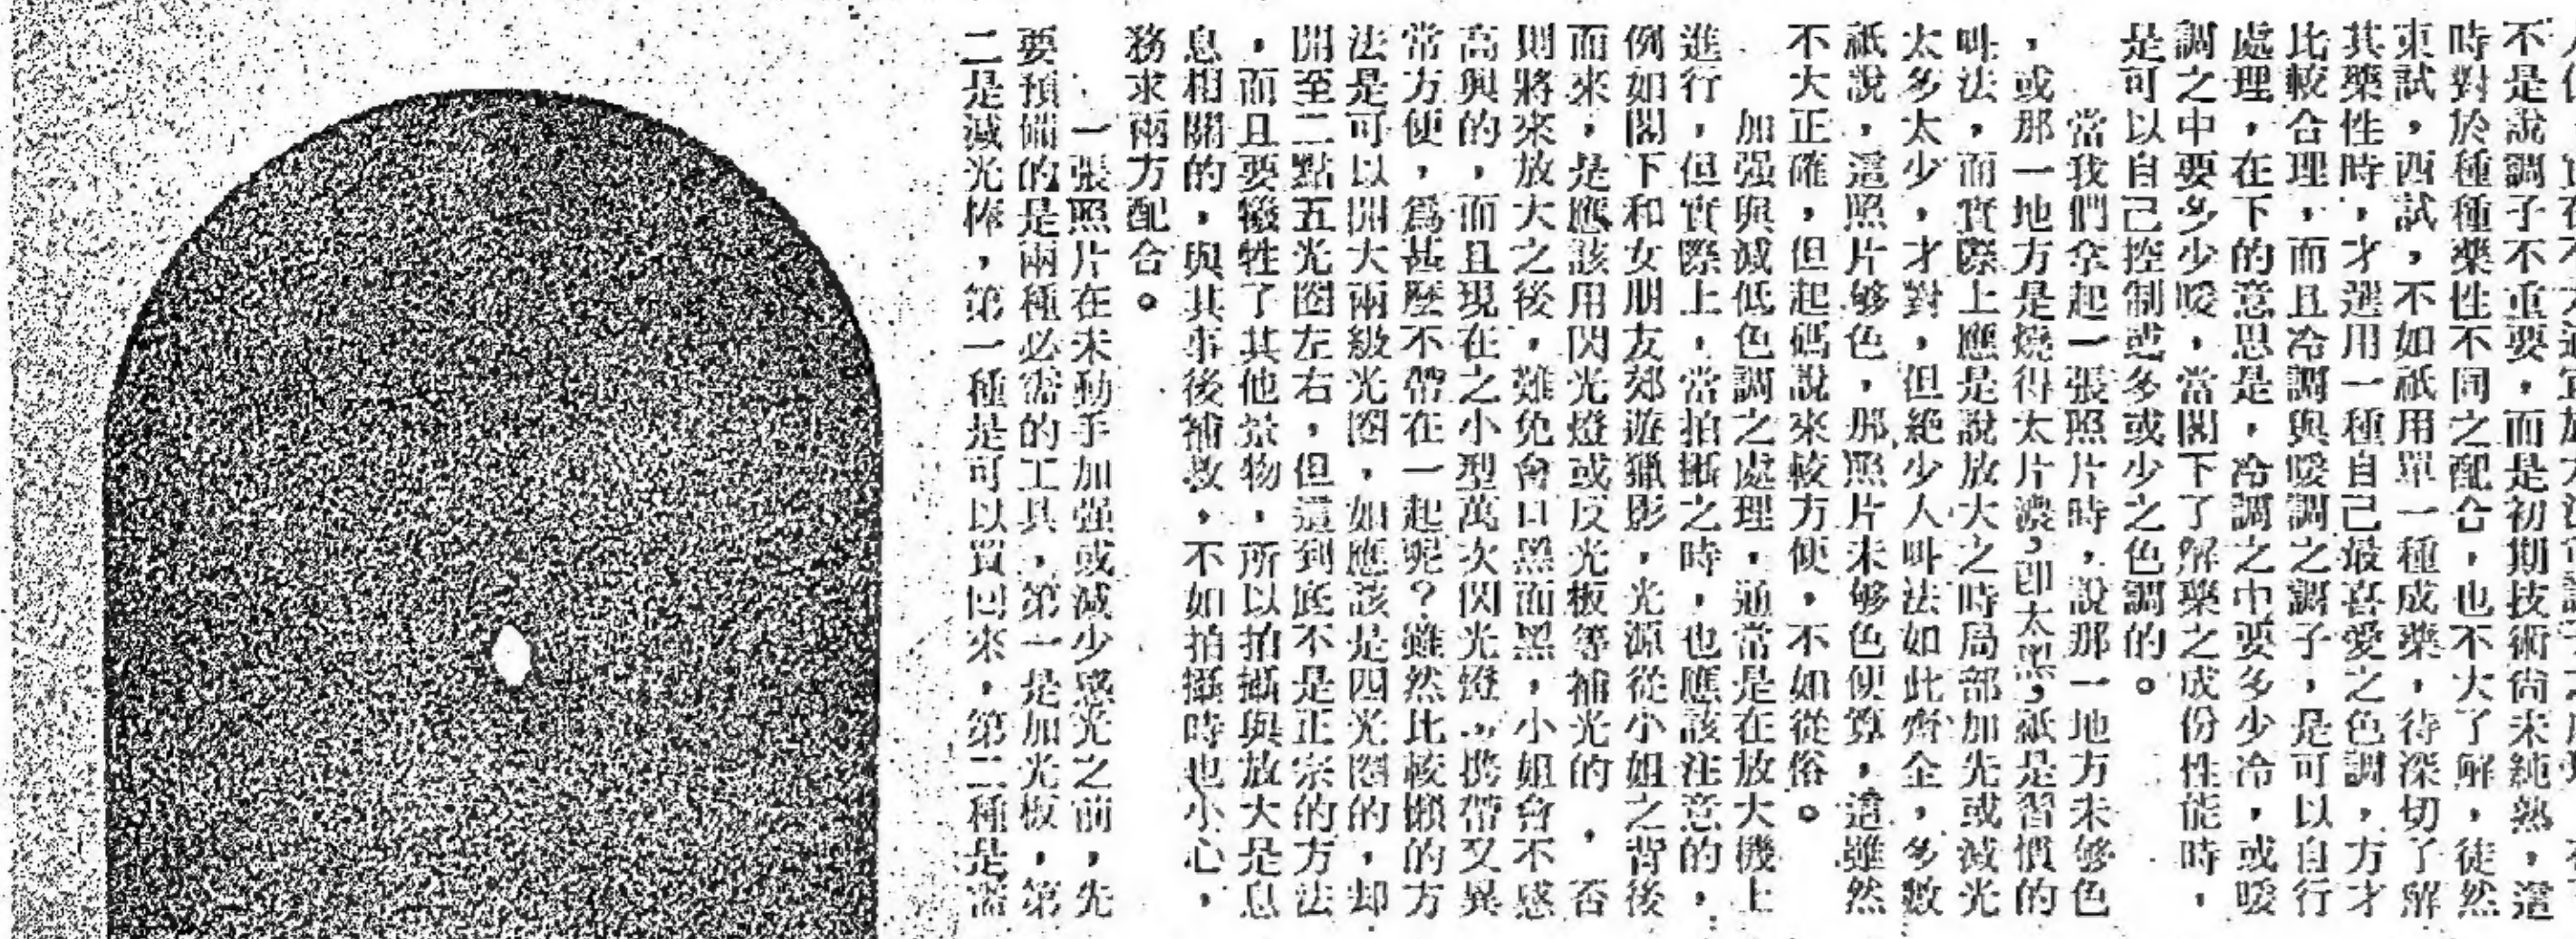 不是說調子不重要，而是初期技術尙未純熟，這
時對於種種藥性不同之配合，也不大了解，徒然
東試，西試，不如祇用單一種成藥，待深切了解
其藥性時，才選用一種自己最喜愛之色調，方才
比較合理，而且冷調與暖調之調子，是可以自行
處理，在下的意思是，冷調之中要多少冷，或暖
調之中要多少暖，當閣下了解藥之成份性能時，
是可以自己控制或多或少之色調的。
當我們拿起一張照片時，說那一地方未够色
，或那一地方是燒得太片濃，卽太黑，祇是習慣的
叫法，而實際上應是說放大之時局部加光或減光
太多太少，才對，但絶少人叫法如此齊全，多數
祇說，這照片够色，那照片未够色便算，這雖然
不大正確，但起碼說來較方便，不如從俗。
加强與減低色調之處理，通常是在放大機上
進行，但實際上，當拍攝之時，也應該注意的，
例如閣下和女朋友郊遊獵影，光源從小姐之背後
而來，是應該用閃光燈或反光板等補光的，否
則將來放大之後，難免會口黑面黑，小姐會不感
高興的，而且現在之小型萬次閃光燈，携帶又異
常方便，爲甚麽不帶在一起呢？雖然比較懶的方
法是可以開大兩級光圈，如應該是四光圈的，却
開至二點五光圈左右，但這到底不是正宗的方法
，而且要犧牲了其他景物，所以拍攝與放大是息
息相關的，與其事後補救，不如拍攝時也小心，
務求兩方配合。
一張照片在未動手加强或減少感光之前，先
要預備的是兩種必需的工具，第一是加光板，第
二是減光棒，第一種是可以買回來，第二種是需